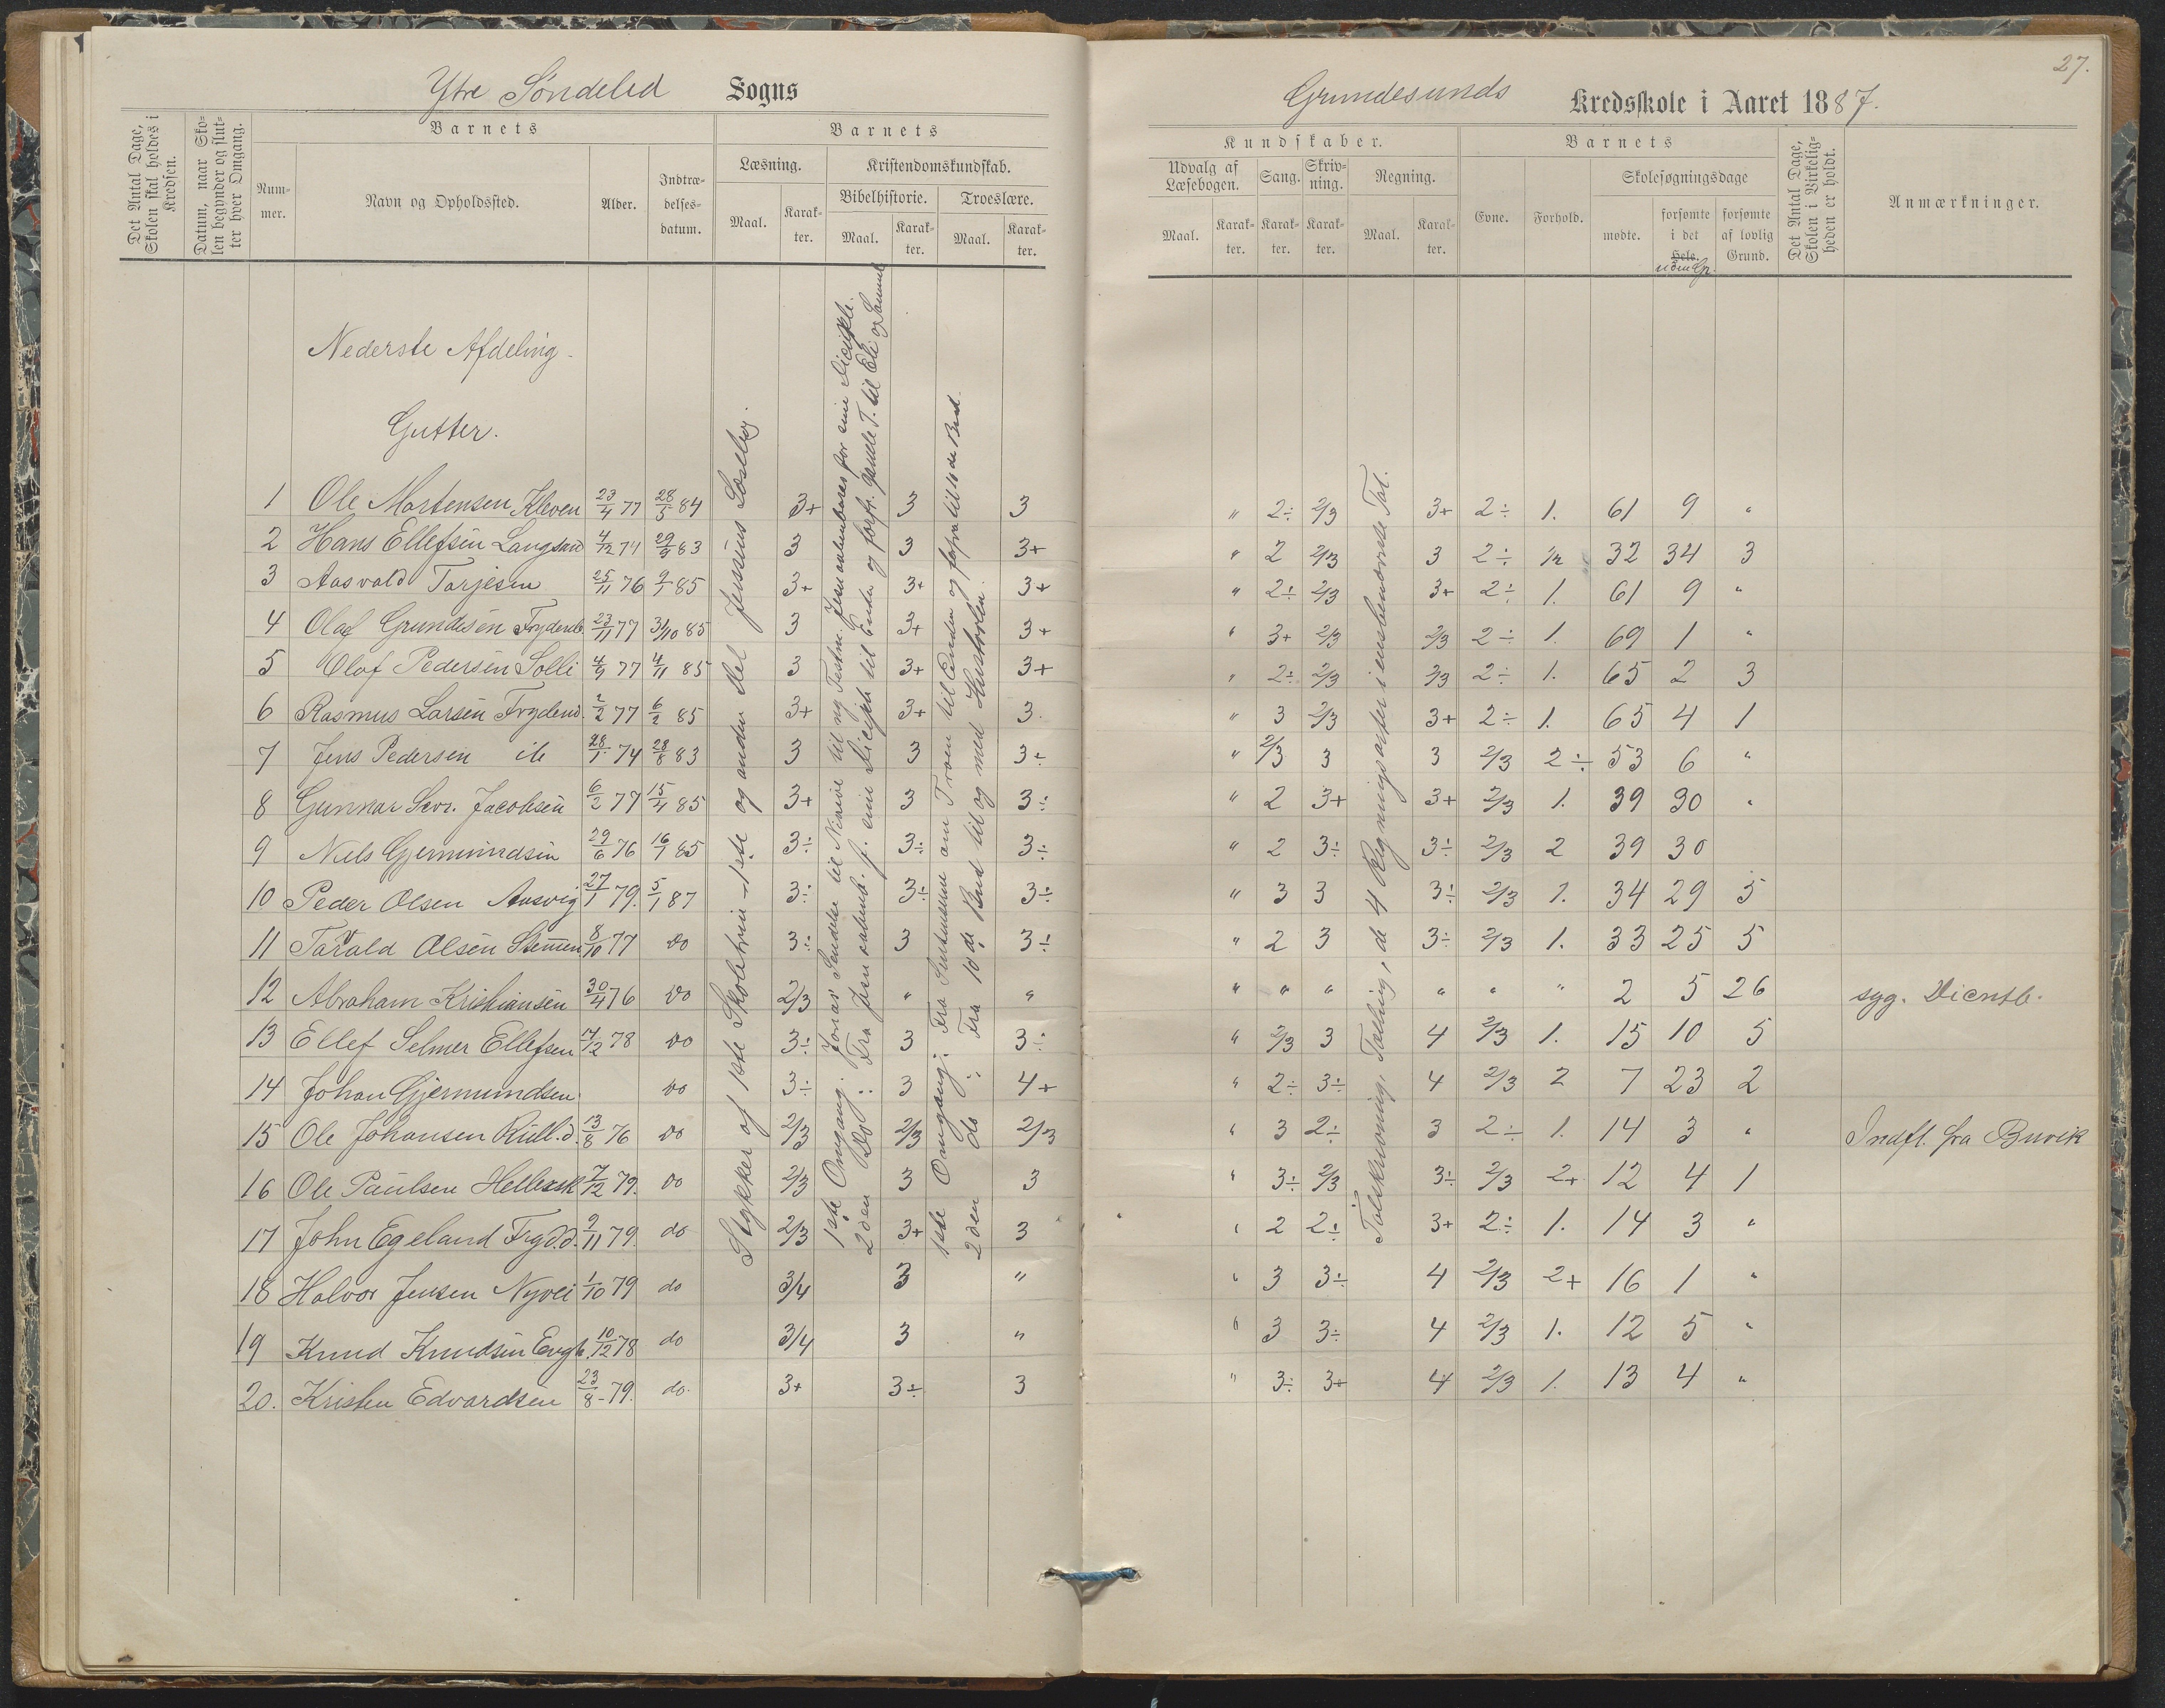 27.
Ytre Søndeled Sogns
Grundesunds Kredsskole i Aaret 1887.
Det Antal Dage, Skolen skal holdes i Kredsen.
Datum, naar Skolen begynder og slutter hver Omgang.
Barnets
Nummer.
Navn og Opholdssted.
Alder.
Indtrædelsesdatum.
Barnets
Læsning.
Maal.
Karakter.
Kristendomskundskab.
Bibelhistorie.
Maal.
Karakter.
Troeslære.
Maal.
Karakter.
Kundskaber.
Udvalg af Læsebogen.
Maal.
Karakter.
Sang.
Karakter.
Skrivning.
Karakter.
Regning.
Maal.
Karakter.
Barnets
Evne.
Forhold.
Skolesøgningsdage
mødte.
forsømte i det Hele.
uden Gr.
forsømte af lovlig Grund.
Det Antal Dage, Skolen i Virkeligheden er holdt.
Anmærkninger.
Nederste Afdeling
Gutter.
1 Ole Mortensen Kleven 23/4 77 28/5 84 3+ 3 3 " 2÷ 2/3 3+ 2÷ 1. 61 9 "
2 Hans Ellefsen 4/12 74 29/9 83 3 3 3+ " 2 2/3 3 2÷ 32 34 3
3 Aasvald Tarjesen 25/11 76 85 3+ 3+ 3+ " 2÷ 2/3 3+ 2÷ 1. 61 9 "
4 Olaf Grundesen 23/11 77 31/10 85 3 3+ 3+ " 3+ 2/3 2/3 2÷ 1. 69 1 "
5 Olaf Pedersen Solli 4/9 77 4/11 85 3 3+ 3+ " 2÷ 2/3 2/3 2÷ 1. 65 2 3
6 Rasmus Larsen Frydend. 2/2 77 6/2 85 3+ 3+ 3. " 3 2/3 3+ 2÷ 1. 65 4 1
7 Jens Pedersen 28/1 74 28/8 83 3 3 3÷ " 2/3 3 3 2/3 2÷ 53 6 "
8 Gunnar Jacobsen 6/2 77 15/4 85 3+ 3 3÷ " 2 3+ 3+ 2/3 1. 39 30 "
9 Niels Gjermundsen 29/6 76 16/1 85 3÷ 3÷ 3÷ " 2 3÷ 3÷ 2/3 2 39 30
10 Peder Olsen Aasvig 27/1 79. 5/1 87 3÷ 3÷ 3÷ " 3 3 3÷ 2/3 1. 34 29 5
11 Tarald Olsen Stemmen 8/10 77 do 3÷ 3 3÷ " 2 3 3÷ 2/3 1. 33 25 5
12 Abraham Kristiansen 30/4 76 do 2/3 " " " " " " " " 2 5 26 syg.
13 Ellef Selmer Ellefsen 17/12 78 do 3÷ 3 3÷ " 2/3 3 4 2/3 1. 15 10 5
14 Johan Gjermundsen. do 3÷ 3 4+ " 2÷ 3÷ 4 2/3 2 7 23 2
15 Ole Johansen 13/8 76 do 2/3 2/3 2/3 " 3 2÷ 3 2÷ 1. 14 3 " Indfl. fra Buvik
16 Ole Paulsen Hellersk. 7/12 79. do 2/3 3 3 " 3÷ 2/3 3÷ 2/3 2+ 12 4 1
17 John Egeland Fryd.d. 9/11 79. do 2/3 3+ 3 " 2 2÷ 3+ 2÷ 1. 14 3 "
18 Halvor Jensen Nyvei 1/10 79 do 3/4 3 " " 3 3÷ 4 2/3 2+ 16 1 "
19 Knud Knudsen 10/12 78 do 3/4 3 " " 3 3÷ 4 2/3 1. 12 5 "
20. Kristen Edvardsen 23/8 - 79. do. 3+ 3÷ 3 " 3÷ 3+ 4 2/3 1. 13 4 "
Stykker af 1ste Skoletrin - 1ste og anden Del
1ste Omgang: Jonas' Sendelse til Ninive til ny Testm. Jesu aabenbares for sine Disciple.
2den Do : Fra Jesu aabenb. f. sine Disciple til Enden og forfr. gamle T. til Eli og Samuel
1ste Omgang: Fra om Troen til Enden og forfra til 10de Bud.
2den do : Fra 10de Bud til og med Hustavlen.
Talskrivning, Tælling, de 4 Regningsarter i ensbenævnte Tal.